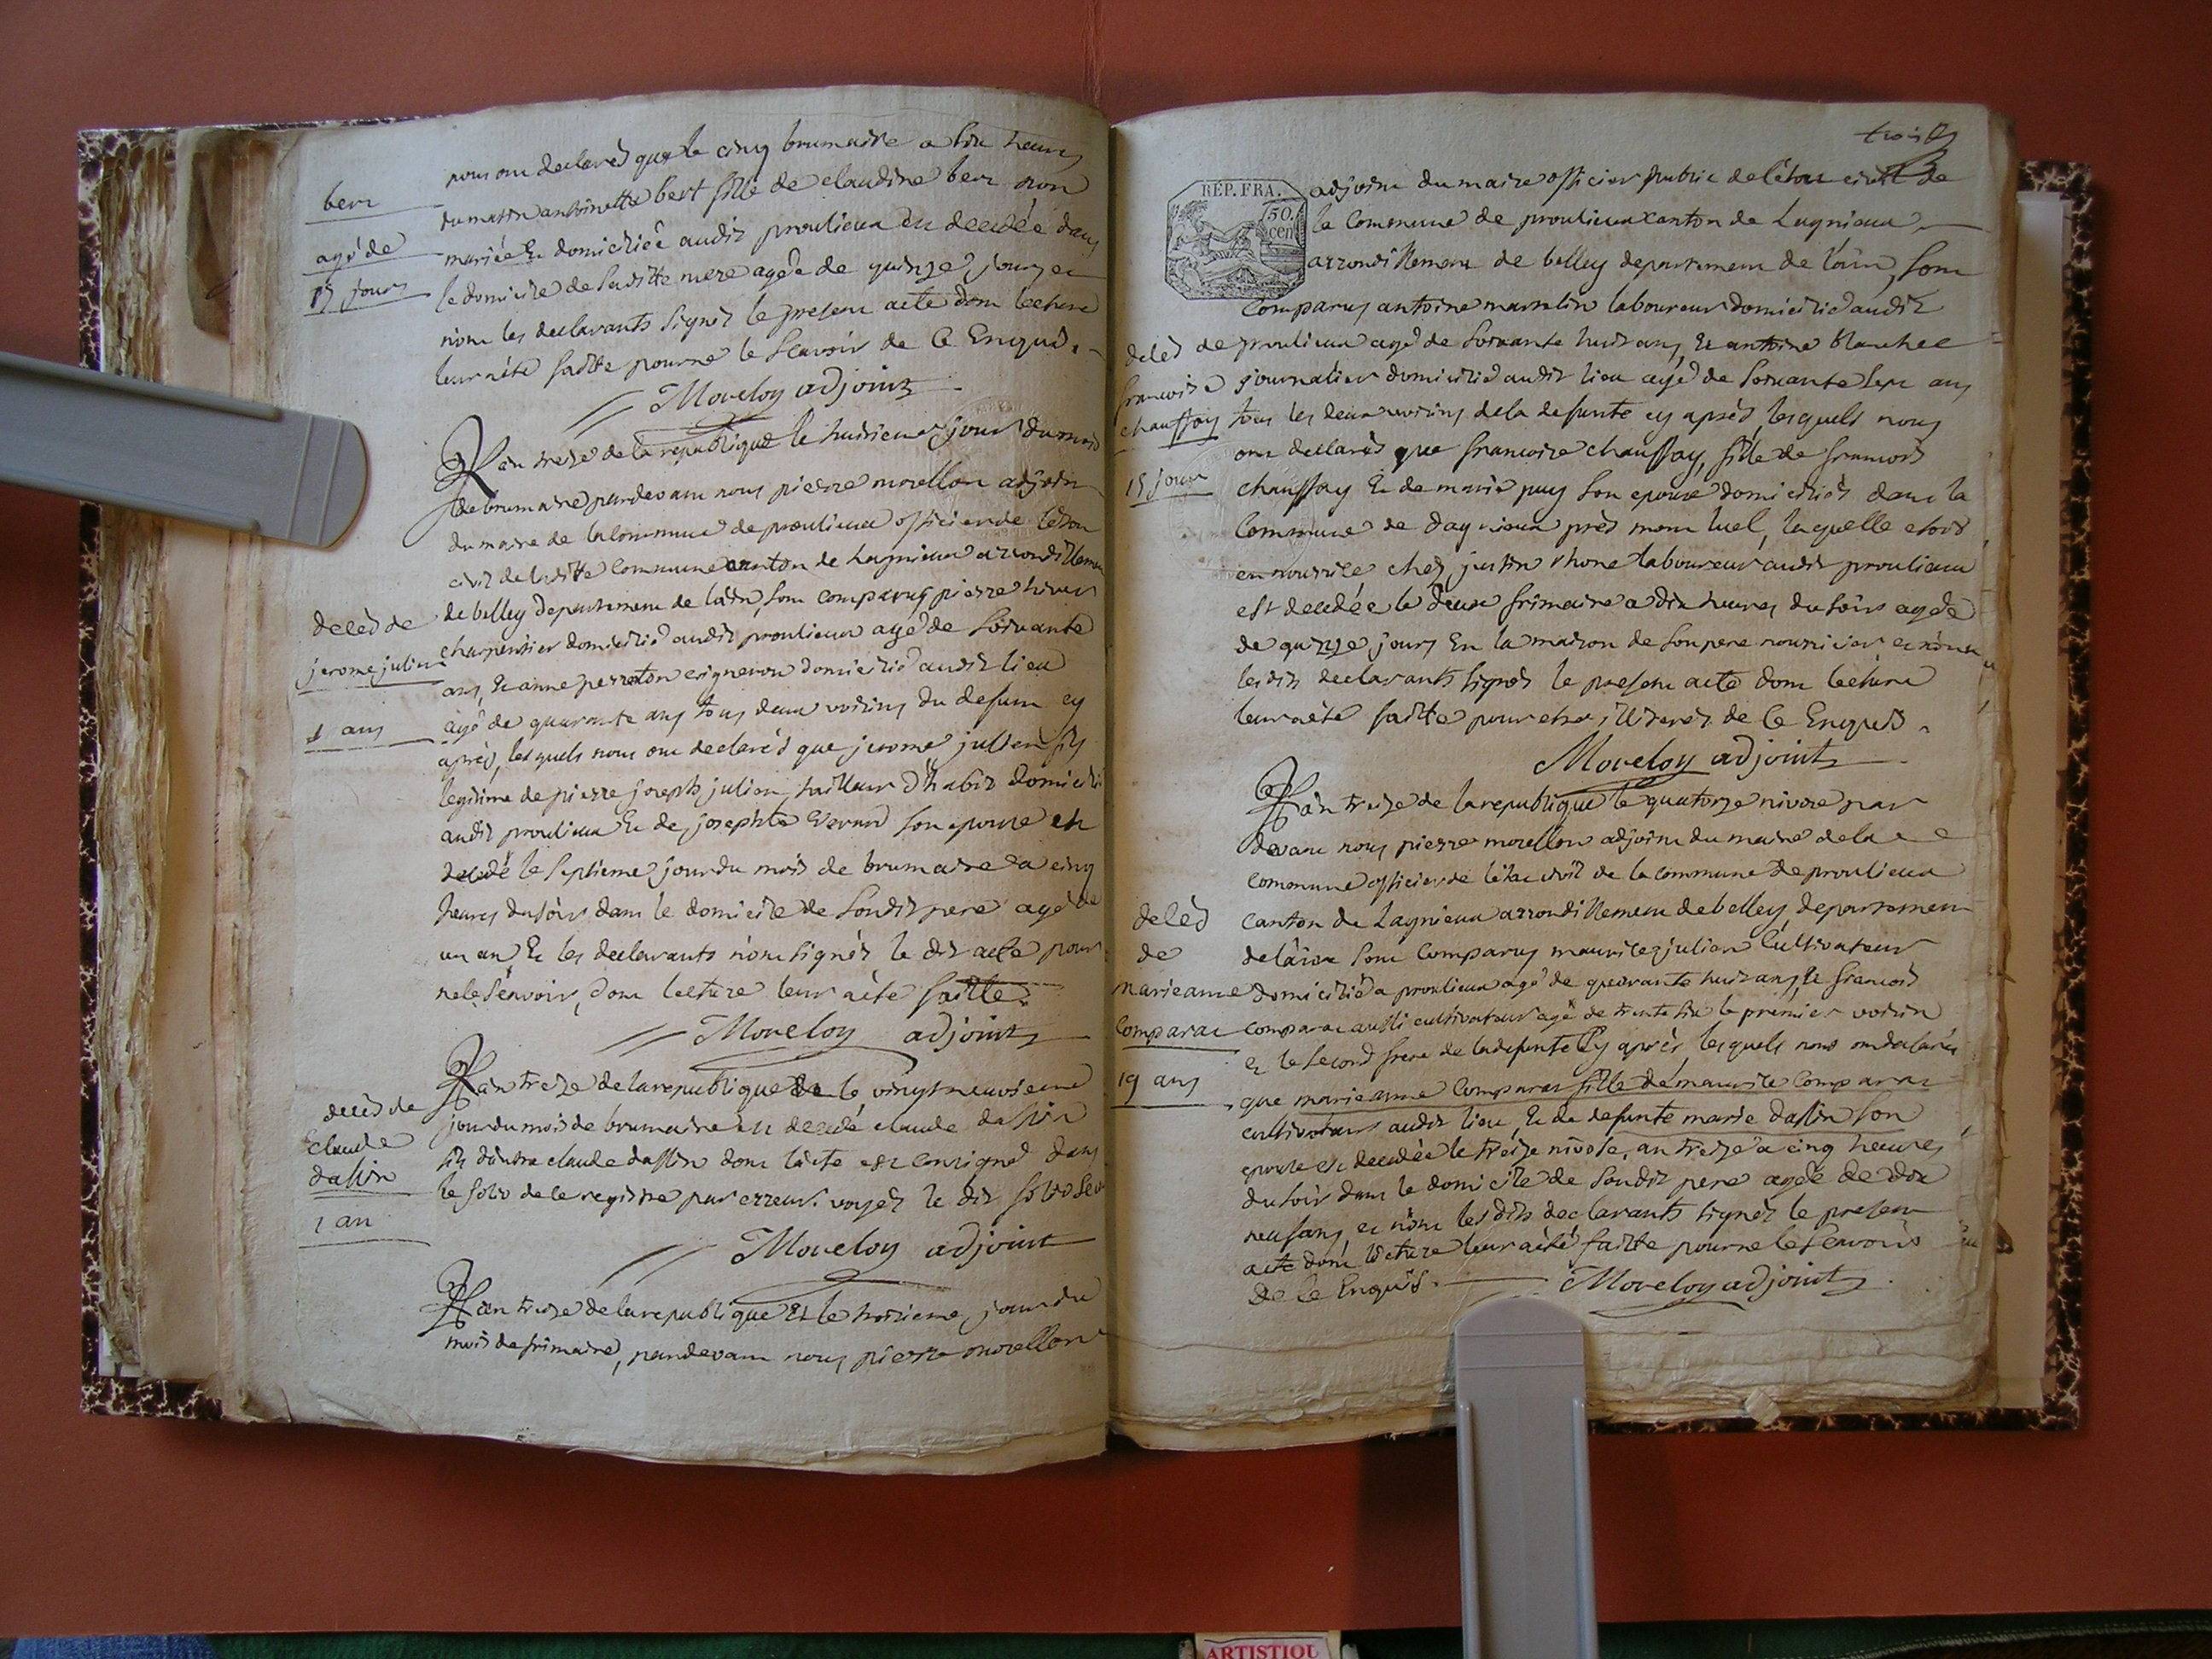 nous ont declarés que le cinq brumaire a six heures
bert
du matin antoinette bert fille de claudine bert non
mariée Et domiciliée audit proulieu est decedée dans
agé de
le domicile de saditte mere agée de quinze jours et
15 jours
n'ont les declarants signés le present acte dont lecture
leur aété faitte pour ne le scavoir de ce Enquis.
Moveloy adjoint
L'an treize de la republique le huitieme jour du mois
de brumaire pardevant nous pierre morellon adjoin
du maire de la Commune de proulieu officier de létat
civil de laditte Commune canton de Lagnieu arrondissement
de belley departement de lain sont comparus pierre
decès de
charpentier domicilié audit proulieu agé de soixante
jerome julien
ans, Et anne perreton vigneron domicilié audit lieu
1 ans
agé de quarante ans tous deux voisins du defunt cy
après, lesquels nous ont declarés que jerome julien fils
legitime de pierre joseph julien tailleur d'habit domicilié
audit proulieu Et de josephte son epouse est
decedé le septieme jour du mois de brumaire a cinq
heures du soir dans le domicile de sondit pere agé de
un an, Et les declarants n'ont signés le dit acte pour
ne le scavoir, dont lecture leur aété faitte.
Moveloy adjoint
L'an treize de la republique le vingt neuvieme
decès de
claude
jour du mois de brumaire est decedé claude dassin
dassin
fils d'autre claude dassin dont l'acte est consigné dans
1 an
le folio de ce registre par erreur. voyez le dit folio
Moveloy adjoint
L'an treize de la republique Et le troisieme jour du
mois de frimaire, pardevant nous pierre morellon
trois
RÉP. FRA.
50.
cen
adjoint du maire officier public de l'état civil de
la Commune de proulieu canton de Lagnieu
arrondissement de belley departement de l'ain, sont
Comparus antoine laboureur domicilié audit
decès de
proulieu agé de soixante huit ans, Et antoine blanchet
francoise
journalier domicilié audit lieu agé de soixante sept ans
chaussay
tous les deux voisins de la defunte cy après, lesquels nous
ont declarés que francoise chaussay, fille de francois
15 jours
chaussay Et de marie puy son epouse domiciliés dans la
Commune de dagnieu près mont luel, laquelle etoit
en nourrice chez justin rhone laboureur audit proulieu
est decedée le deux frimaire a dix heures du soir agée
de quinze jours En la maison de son pere nourricier et n'ont
lesdits declarants signés le present acte dont lecture
leur aété faitte pour etre illiterés de ce Enquis.
Moveloy adjoint
L'an treize de la republique le quatorze nivose par
devant nous pierre morellon adjoint du maire de la
commune officier de l'état civil de la commune de proulieu
decès
canton de Lagnieu arrondissement de belley, departement
de
de l'ain sont Comparus maurice julien Cultivateur
marieanne
domicilié a proulieu agé de quarante huit ans, Et francois
comparat
comparat aussi cultivateur agé de trente six le premier voisin
et le second frere de la defunte cy après, lesquels nous ont declarés
19 ans
que marieanne Comparat fille de maurice Comparat
cultivateur audit lieu, Et de defunte marie dassin son
epouse est decedée le treize nivose, an treize a cinq heures
du soir dans le domicile de sondit pere agée de dix
neuf ans, et n'ont lesdits declarants signés le present
acte dont lecture leur aété faitte pour ne le scavoir
de ce Enquis.
Moveloy adjoint
ARTISTIQU